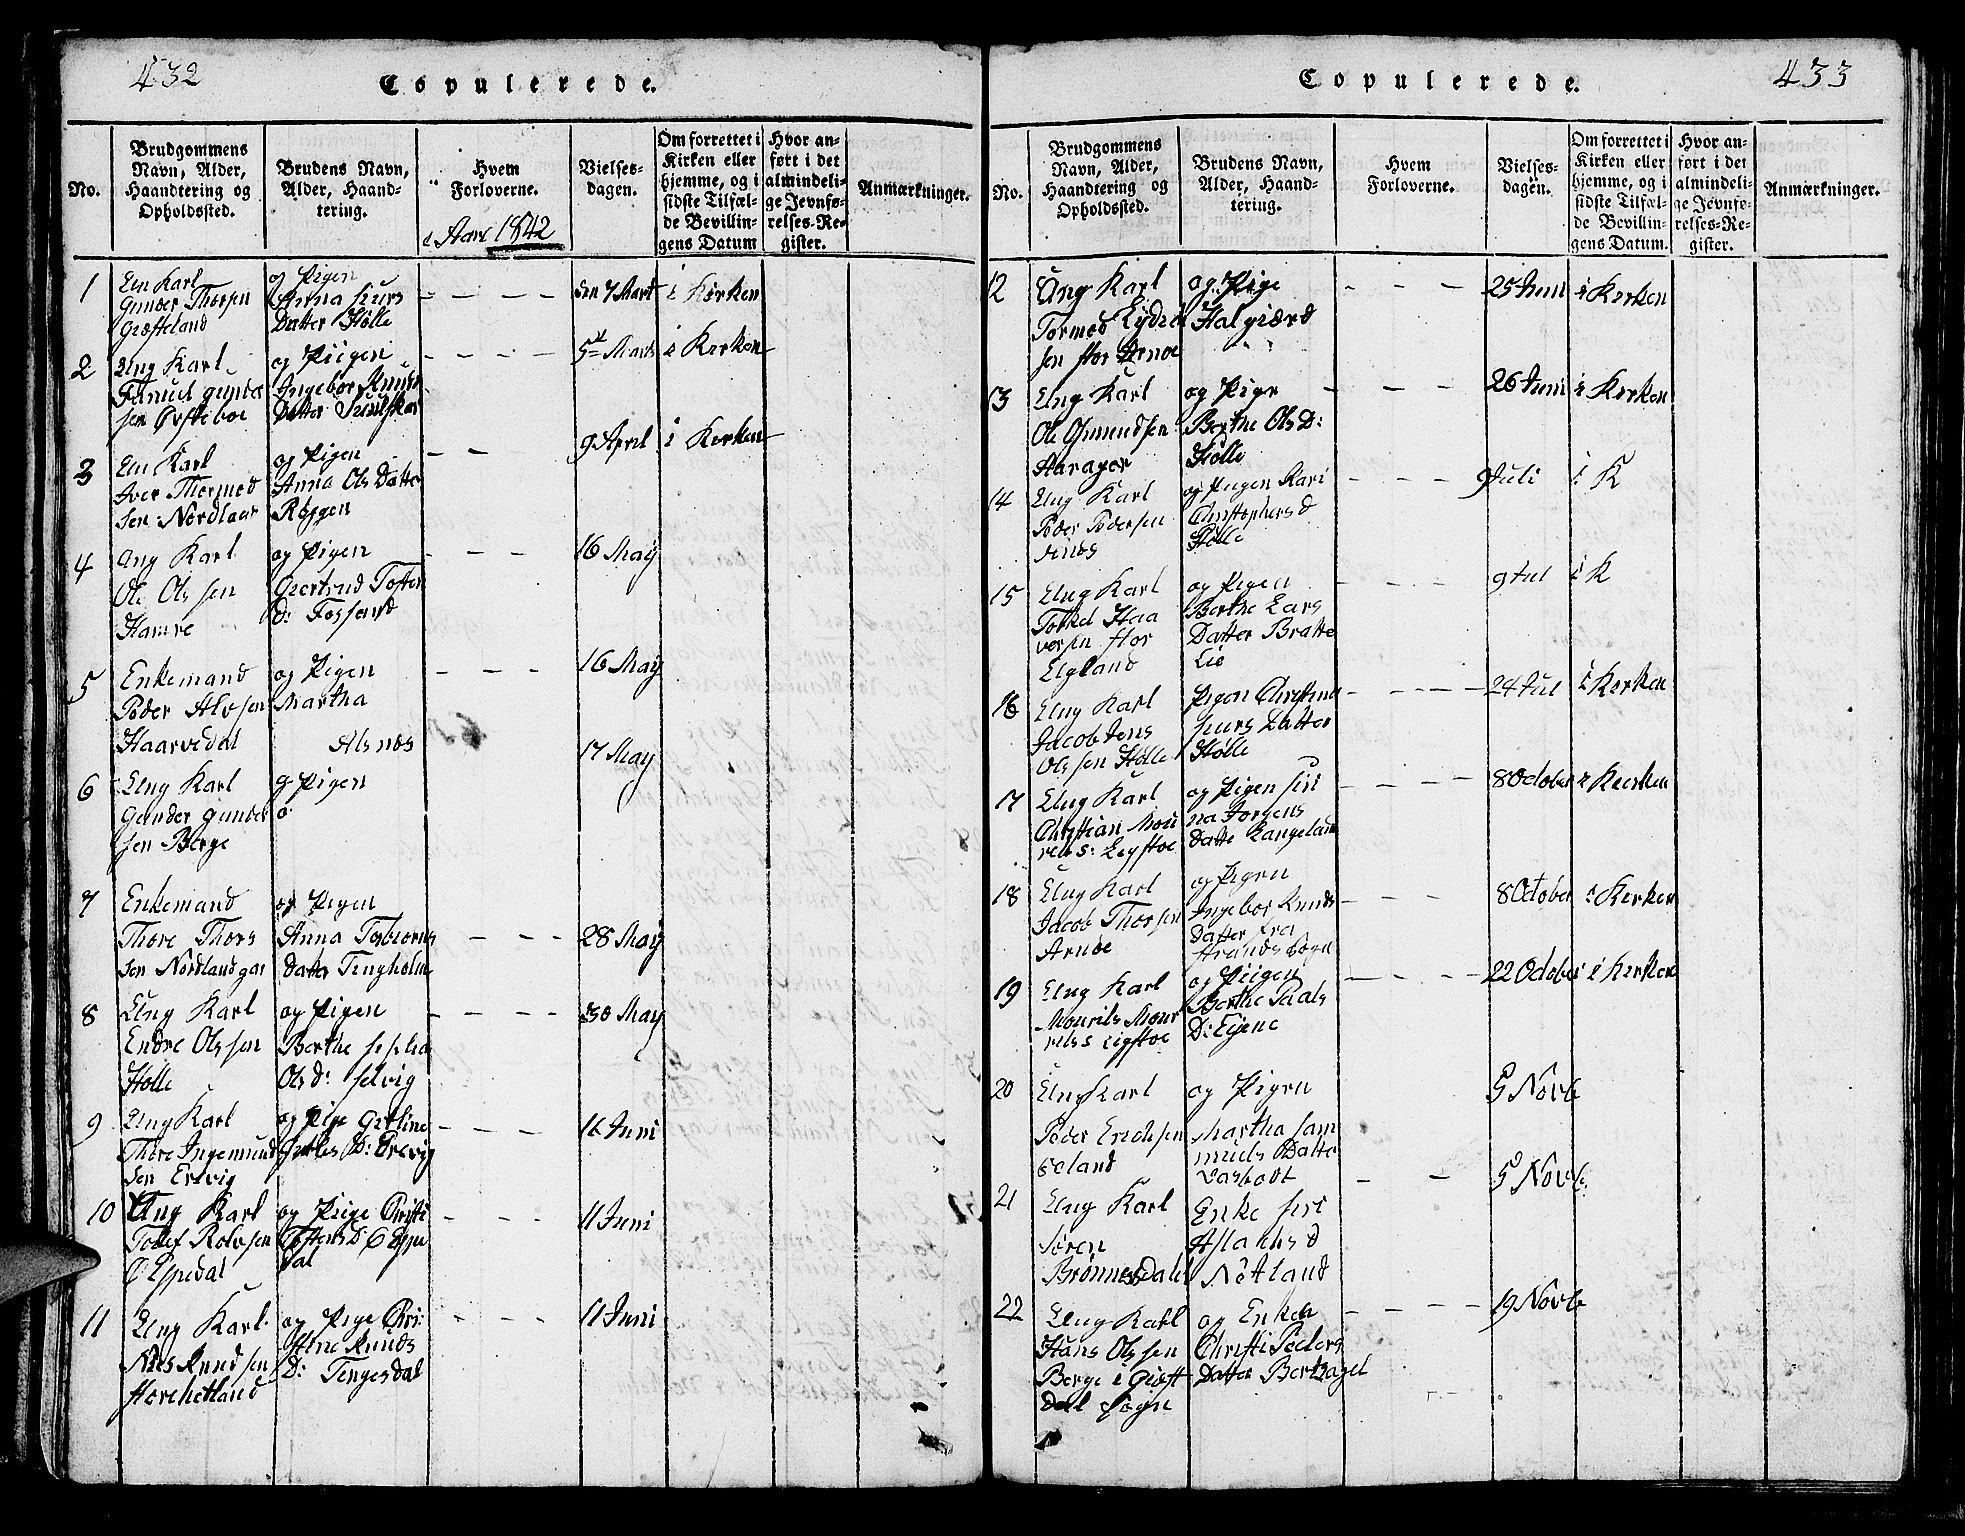 432
Copulerede.
No.
Brudgommens
Navn, Alder,
Haandtering og
Opholdssted.
Brudens Navn,
Alder, Haand-
tering.
Hvem
Forloverne.
Aaret 1842
Vielses-
dagen.
Om forrettet i
Kirken eller
hjemme, og i
sidste Tilfæl-
de Bevillin-
gens Datum
Hvor an-
ført i det
almindeli-
ge Jevnfø-
relses-Re-
gister.
Anmærkninger.
1
Gunder Thorsen
Græfteland
og Pigen
Anna Siurs
Datter Hölle
den 7 Mart
i Kirken
2
Ung Karl
Samuel gunder
sen Øvsteboe
og Piigen
Ingebor Knuds
Datter
5te Marts
i Kerken
3
Karl
Iver Thormod
sen Nordland
og Pigen
Anna Ols Datter
9 April
i Kerken
4
Ung Karl
Ole Ols sen
Hamre
og Pigen
Geertrud Tosten
D: Fossand
16 May
5
Enkemand
Peder Alvsen
Haarvedal
og Pigen
Martha
Alsnes
16 May
6
Ung Karl
Gunder gunder
sen Berge
og Pigen
17 May
7
Enkemand
Thore Thors
sen Nordlandgar
og Pigen
Anna Tosbiorns
datter Tengholm
28 May
8
Ung Karl
Endre Olssen
Hölle
og Pigen
Berthe
Ols d: Selvig
30 May
9
Ung Karl
Thore Ingemund
sen Ervig
og Pige
D: Ervig
16 Juni
10
Ung Karl
Tollef Rolvsen
Espedal
og Piige Christi
Tostens D
dal
11 Juni
11
Ung Karl
Niels Knudsen
og Pige Chri
stine Knuds
D: Tengesdal
11 Juni
433
Copulerede.
No.
Brudgommens
Navn, Alder,
Haandtering og
Opholdssted.
Brudens Navn,
Alder, Haand-
tering.
Hvem
Forloverne.
Vielses-
dagen.
Om forrettet i
Kirken eller
hjemme, og i
sidste Tilfæl-
de Bevillin-
gens Datum.
Hvor an-
ført i det
almindeli-
ge Jevnfø-
relses-Re-
gister.
Anmærkninger.
12
Ung Karl
Tormod Eydn
sen stor Arnøe
og Pige
Halgiærd
25 Juni
i Kerken
13
Ung Karl
Ole Osmundsen
Aarager
og Pige
Berthe Ols D:
Hölle
26 Juni
i Kerken
14
Ung Karl
Peder Pedersen
og Pigen Kari
Christophers d
Hölle
9 Juli
i K
15
Ung Karl
Torkel Haa
vorsen stor
Elgland
og Pigen
Berthe Lars
Datter Bratte
Lie
9 Jul
i K
16
Ung Karl
Jacob Jens
Ols sen Hölle
Pigen Christina
Siurs Datter
Hölle
24 Jul
i Kerken
17
Ung Karl
Christian Mou
og Pigen Siri
na Jorgens
Datte Rangeland
8 October
18
Ung Karl
Jacob Thorsen
Arnøe
og Pigen
Ingebor Knuds
Datter fra
Strands sogn
8 October
i Kerken
19
Ung Karl
og Piigen
Berthe Paals
D: Eiene
22 October
i Kerken
20
Ung Karl
Peder Erichsen
og Pigen
Martha Sam
muels Datter
5 Novb
21
Ung Karl
Søren
Brönnesdalel
Enke Siri
Aslachs d
Nötland
5 Novb:
22
Ung Karl
Hans Olssen
Berge i Giest
dal sogn
og Enken
Christi Peders
Datter
19 Novb